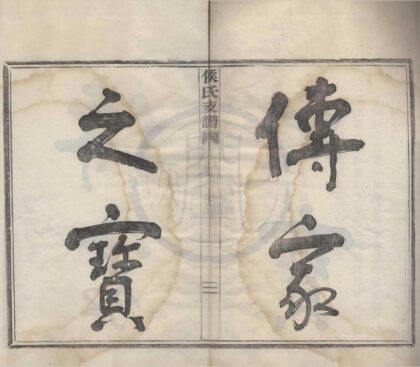 傳家
侯氏支譜
二
之寶